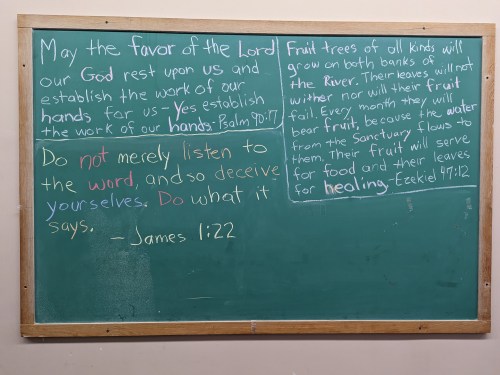 May the favor of the Lord
our God rest upon us and
establish the work of our
hands for us - yes establish
the work of our hands. Psalm 90:17
Do not merely listen to
the word, and so deceive
yourselves. Do what it
says.
- James 1:22
Fruit trees of all kinds will
grow on both banks of
the River. Their leaves will not
wither nor will their fruit
fail. Every month they will
bear fruit, because the water
from the Sanctuary flows to
them. Their fruit will serve
for food and their leaves
for healing. - Ezekiel 47:12